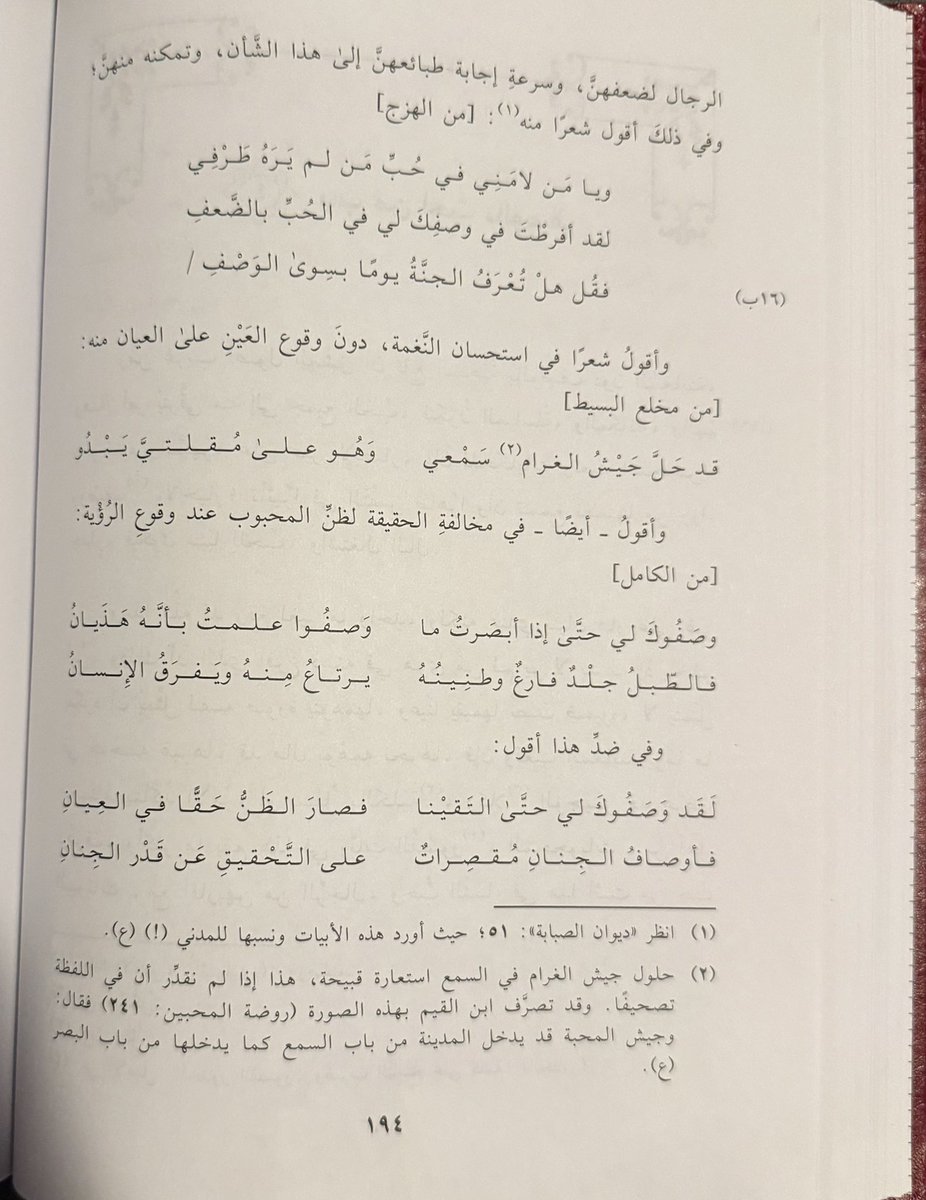 الرجال لضعفهنَّ، وسرعةِ إجابة طبائعهنَّ إلىٰ هذا الشَّأن، وتمكنه منهنَّ؛
وفي ذلكَ أقول شعرًا منه(١): [من الهزج]
ويا مَن لامَنِي في حُبِّ مَن لم يَرَهُ طَرْفِي
لقد أفرطْتَ في وصفِكَ لي في الحُبِّ بالضَّعفِ
فقُل هلْ تُعْرَفُ الجنَّةُ يومًا بسِوىٰ الوَصْفِ / (١٦ب)
وأقولُ شعرًا في استحسان النَّغمة، دونَ وقوع العَيْنِ علىٰ العيان منه:
[من مخلع البسيط]
قد حَلَّ جَيْشُ الغرام(٢) سَمْعي وَهُو علىٰ مُقلتيَّ يَبْدُو
وأقولُ ـ أيضًا ـ في مخالفةِ الحقيقة لظنِّ المحبوب عند وقوعِ الرُؤْية:
[من الكامل]
وصَفُوكَ لي حتَّىٰ إذا أبصَرتُ ما وَصفُوا علمتُ بأنَّهُ هَذَيانُ
فالطّبلُ جلْدٌ فارغٌ وطنِينُهُ يرتاعُ مِنهُ ويَفرَقُ الإنسانُ
وفي ضدِّ هذا أقول:
لَقَد وَصَفُوكَ لي حتَّىٰ التَقيْنا فصارَ الظَنُّ حَقًّا في العِيانِ
فأوصافُ الجِنانِ مُقصِراتٌ على التَّحْقيقِ عَن قَدْر الجِنانِ
(١) انظر «ديوان الصبابة»: ٥١؛ حيث أورد هذه الأبيات ونسبها للمدني (!) (ع).
(٢) حلول جيش الغرام في السمع استعارة قبيحة، هذا إذا لم نقدِّر أن في اللفظة
تصحيفًا. وقد تصرَّف ابن القيم بهذه الصورة (روضة المحبين: ٢٤١) فقال:
وجيش المحبة قد يدخل المدينة من باب السمع كما يدخلها من باب البصر
(ع).
١٩٤